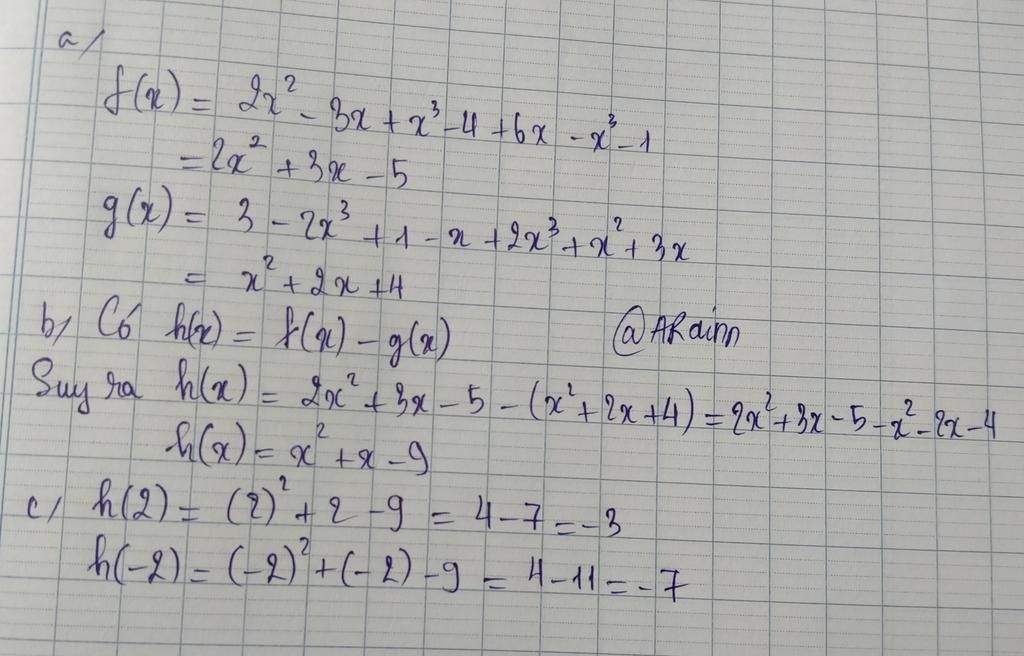 a/
f(x) = 2x² - 3x + x³ - 4 + 6x - x³ - 1
= 2x² + 3x - 5
g(x) = 3 - 2x³ + 1 - x + 2x³ + x² + 3x
= x² + 2x + 4
b, Có h(x) = f(x) - g(x) @ARainn
Suy ra h(x) = 2x² + 3x - 5 - (x² + 2x + 4) = 2x² + 3x - 5 - x² - 2x - 4
h(x) = x² + x - 9
c/ h(2) = (2)² + 2 - 9 = 4 - 7 = -3
h(-2) = (-2)² + (-2) - 9 = 4 - 11 = -7